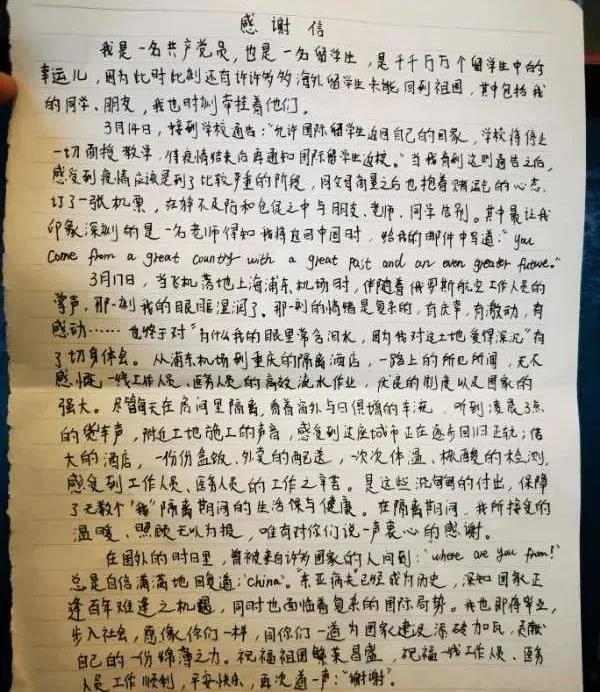 感谢信
我是一名共产党员，也是一名留学生，是千千万万个留学生中的
幸运儿，因为此时此刻还有许许多多海外留学生未能回到祖国，其中包括我
的同学、朋友，我也时刻牵挂着他们。
3月14日，接到学校通告："允许国际留学生返回自己的国家，学校将停止
一切面授教学，待疫情结束后再通知国际留学生返校。"当我看到这则通告之后，
感受到疫情应该是到了比较严重的阶段，同父母商量之后也抱着赌运气的心态，
订了一张机票，在猝不及防和仓促之中与朋友、老师、同学告别。其中最让我
印象深刻的是一名老师得知我将返回中国时，给我的邮件中写道："you
come from a great country with a great past and an even greater future."
3月17日，当飞机落地上海浦东机场时，伴随着俄罗斯航空工作人员的
掌声，那一刻我的眼眶湿润了。那一刻的情绪是复杂的，有庆幸，有激动，有
感动……也终于对"为什么我的眼里常含泪水，因为我对这土地爱得深沉"有
了切身体会。从浦东机场到重庆的隔离酒店，一路上的所见所闻，无不
感慨一线工作人员、医务人员的高效流水作业，庆民的制度以及国家的
强大。尽管每天在房间里隔离，看着窗外与日俱增的车流，听到凌晨3点
的货车声，附近工地施工的声音，感受到这座城市正在逐步回归正轨；偌
大的酒店，一份份盒饭、外卖的配送，一次次体温、核酸的检测，
感受到工作人员、医务人员的工作之辛苦。是这些沉甸甸的付出，保障
了无数个"我"隔离期间的生活保与健康。在隔离期间，我所接受的
温暖、照顾无以为报，唯有对你们说一声衷心的感谢。
在国外的时日里，曾被来自许多国家的人问到："where are you from?"
总是自信满满地回复道："China"。东亚病夫已经成为历史，深知国家正
逢百年难逢之机遇，同时也面临着复杂的国际局势。我也即将毕业，
步入社会，愿像你们一样，同你们一道为国家建设添砖加瓦，贡献
自己的一份绵薄之力。祝福祖国繁荣昌盛，祝福一线工作人员、医务
人员工作顺利，平安快乐，再次道一声："谢谢"。